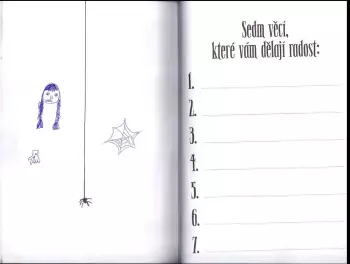 Sedm věcí,
které vám dělají radost:
1.
2.
3.
4.
5.
6.
7.